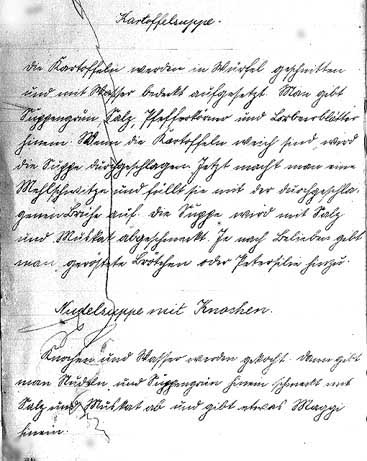 Kartoffelsuppe.
Die Kartoffeln werden in Würfel geschnitten
und mit Wasser bedeckt aufgesetzt. Man gibt
Suppengrün, Salz, Pfefferkörner und Lorbeerblätter
hinein. Wenn die Kartoffeln weich sind, wird
die Suppe durchgeschlagen. Jetzt macht man eine
Mehlschwitze und füllt sie mit der durchgeschla-
genen Brühe auf. Die Suppe wird mit Salz
und Muskat abgeschmeckt. Je nach Belieben gibt
man geröstete Brötchen oder Petersilie hinzu.
Nudelsuppe mit Knochen.
Knochen und Wasser werden gekocht. Dann gibt
man Nudeln und Suppengrün hinein schmeckt mit
Salz und Muskat ab und gibt etwas Maggi
hinein.